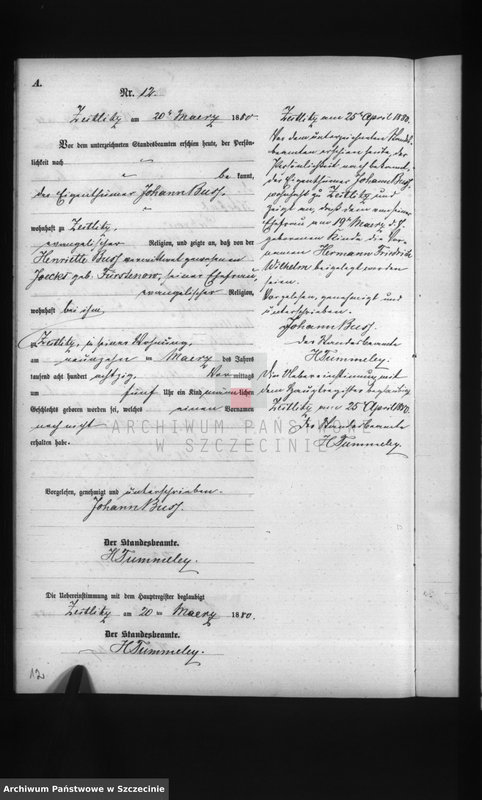 A.
Nr. 12.
Zeitlitz am 20ᵗ Maerz 1880.
Vor dem unterzeichneten Standesbeamten erschien heute, der Persön-
lichkeit nach
be kannt,
der Eigenthümer Johann Buss,
wohnhaft zu Zeitlitz,
evangelischer Religion, und zeigte an, daß von der
Henriette Buss verwittwet gewesenen
Joecks geb. Fürstenow, seiner Ehefrau,
evangelischer Religion,
wohnhaft bei ihm,
Zeitlitz, in seiner Wohnung,
am neunzehn ten Maerz des Jahres
tausend acht hundert achtzig, Vor mittags
um fünf Uhr ein Kind maennlichen
Geschlechts geboren worden sei, welches einen Vornamen
noch nicht
erhalten habe.
Vorgelesen, genehmigt und unterschrieben.
Johann Buss.
Der Standesbeamte.
H Tummeley.
Die Uebereinstimmung mit dem Hauptregister beglaubigt
Zeitlitz am 20 ten Maerz 1880.
Der Standesbeamte.
H Tummeley.
12
Zeitlitz am 25ᵗ April 1880.
Vor dem unterzeichneten Standes-
beamten erschien heute, der
Persönlichkeit nach bekannt,
der Eigenthümer Johann Buss,
wohnhaft zu Zeitlitz und
zeigte an, daß dem von seiner
Ehefrau am 19ᵗ Maerz d. J.
geborenen Kinde die Vor-
namen Hermann Friedrich
Wilhelm beigelegt worden
seien.
Vorgelesen, genehmigt und
unterschrieben.
Johann Buss.
Der Standesbeamte
H Tummeley.
Die Uebereinstimmung mit
dem Hauptregister beglaubigt
Zeitlitz am 25 April 1880.
Der Standesbeamte
H Tummeley.
ARCHIWUM PAŃSTWOWE
W SZCZECINIE
Archiwum Państwowe w Szczecinie